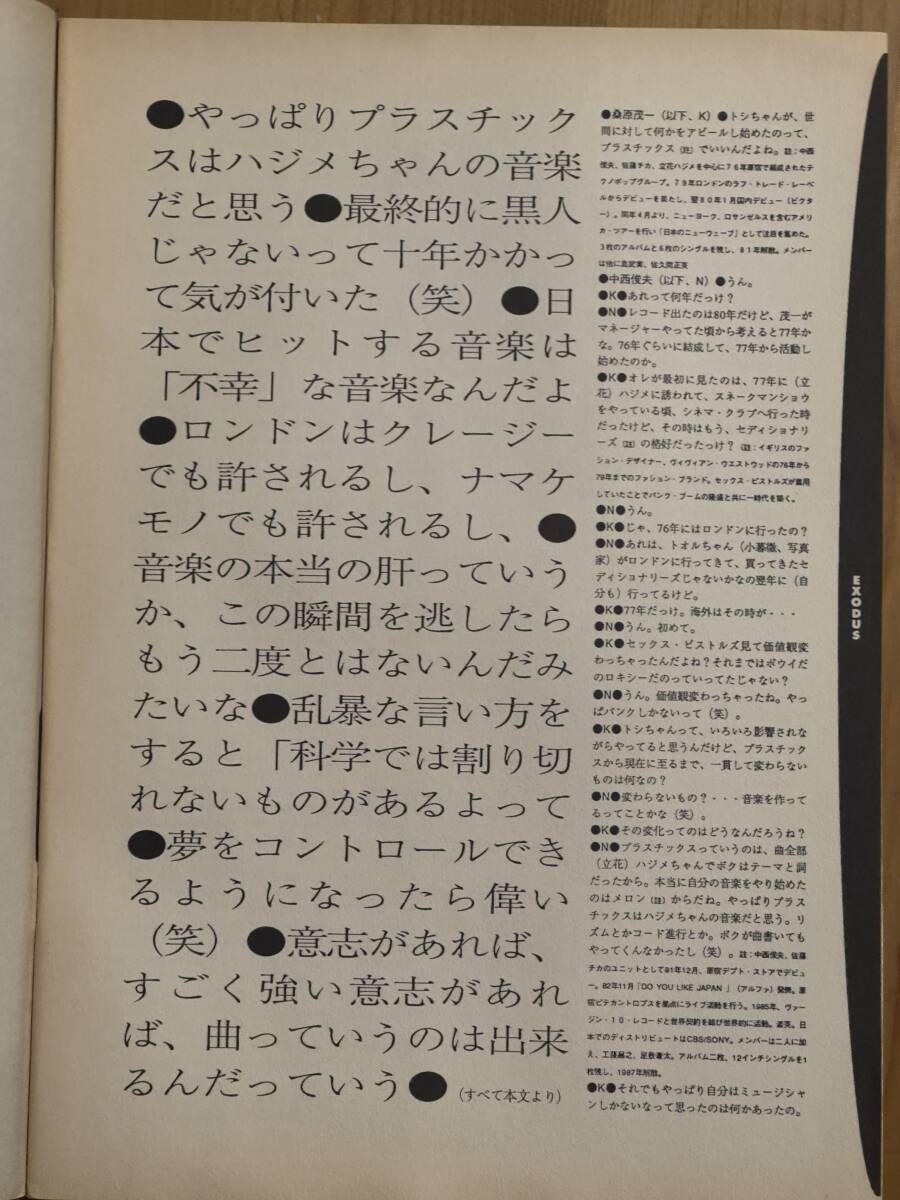 ●やっぱりプラスチック
スはハジメちゃんの音楽
だと思う●最終的に黒人
じゃないって十年かかっ
て気が付いた（笑）●日
本でヒットする音楽は
「不幸」な音楽なんだよ
●ロンドンはクレージー
でも許されるし、ナマケ
モノでも許されるし、●
音楽の本当の肝っていう
か、この瞬間を逃したら
もう二度とはないんだみ
たいな●乱暴な言い方を
すると「科学では割り切
れないものがあるよって
●夢をコントロールでき
るようになったら偉い
（笑）●意志があれば、
すごく強い意志があれ
ば、曲っていうのは出来
るんだっていう●（すべて本文より）
●桑原茂一（以下、K）●トシちゃんが、世
間に対して何かをアピールし始めたのって、
プラスチックス（註）でいいんだよね。註：中西
俊夫、佐藤チカ、立花ハジメを中心に７６年原宿で結成されたテ
クノポップグループ。７９年ロンドンのラフ・トレード・レーベ
ルからデビューを果たし、翌８０年１月国内デビュー（ビクタ
ー）。同年４月より、ニューヨーク、ロサンゼルスを含むアメリ
カ・ツアーを行い「日本のニューウェーブ」として注目を集めた。
３枚のアルバムと６枚のシングルを残し、８１年解散。メンバー
は他に島武実、佐久間正英
●中西俊夫（以下、N）●うん。
●K●あれって何年だっけ？
●N●レコード出たのは80年だけど、茂一が
マネージャーやってた頃から考えると77年か
な。76年ぐらいに結成して、77年から活動し
始めたのか。
●K●オレが最初に見たのは、77年に（立
花）ハジメに誘われて、スネークマンショウ
をやっている頃、シネマ・クラブへ行った時
だったけど、その時はもう、セディショナリ
ーズ（註）の格好だったっけ？（註：イギリスのファ
ッション・デザイナー、ヴィヴィアン・ウエストウッドの76年から
79年までのファッション・ブランド。セックス・ピストルズが着用
していたことでパンク・ブームの隆盛と共に一時代を築く。
●N●うん。
●K●じゃ、76年にはロンドンに行ったの？
●N●あれは、トオルちゃん（小暮徹、写真
家）がロンドンに行ってきて、買ってきたセ
ディショナリーズじゃないかなの翌年に（自
分も）行ってるけど。
●K●77年だっけ。海外はその時が・・・
●N●うん。初めて。
●K●セックス・ピストルズ見て価値観変
わっちゃったんだよね？それまではボウイだ
のロキシーだのっていってたじゃない？
●N●うん。価値観変わっちゃったね。やっ
ぱパンクしかないって（笑）。
●K●トシちゃんって、いろいろ影響されな
がらやってると思うんだけど、プラスチック
スから現在に至るまで、一貫して変わらない
ものは何なの？
●N●変わらないもの？・・・音楽を作って
るってことかな（笑）。
●K●その変化ってのはどうなんだろうね？
●N●プラスチックスっていうのは、曲全部
（立花）ハジメちゃんでボクはテーマと詞
だったから。本当に自分の音楽をやり始めた
のはメロン（註）からだね。やっぱりプラス
チックスはハジメちゃんの音楽だと思う。リ
ズムとかコード進行とか。ボクが曲書いても
やってくんなかったし（笑）。註：中西俊夫、佐藤
チカのユニットとして81年12月、原宿デプト・ストアでデビュ
ー。82年11月「DO YOU LIKE JAPAN 」（アルファ）発表。原
宿ピテカントロプスを拠点にライブ活動を行う。1985年、ヴァー
ジン・10・レコードと世界契約を結び世界的に活動。渡英。日
本でのディストリビュートはCBS/SONY。メンバーは二人に加
え、工藤昌之、屋敷豪太。アルバム二枚、12インチシングルを1
枚残し、1987年解散。
●K●それでもやっぱり自分はミュージシャ
ンしかないなって思ったのは何かあったの。
EXODUS